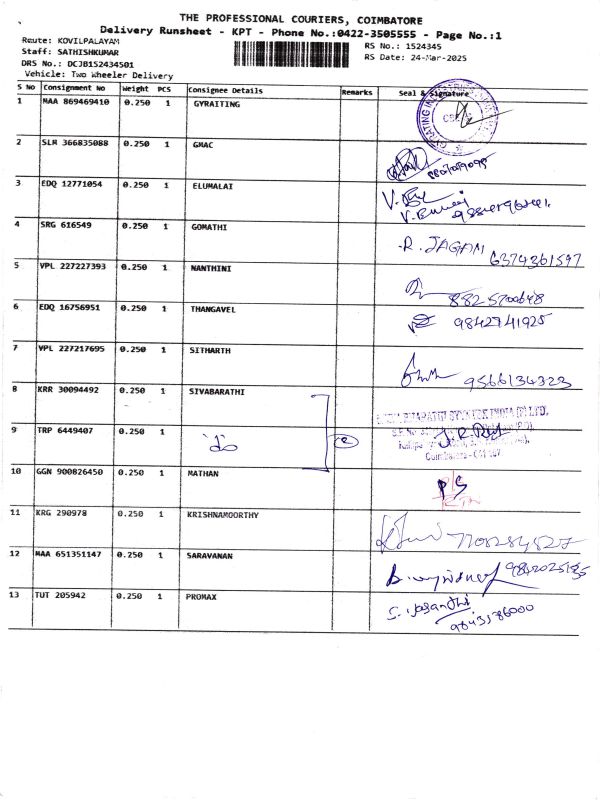 THE PROFESSIONAL COURIERS, COIMBATORE
Delivery Runsheet - KPT - Phone No.:0422-3505555 - Page No.:1
Route: KOVILPALAYAM
RS No.: 1524345
Staff: SATHISHKUMAR
RS Date: 24-Mar-2025
DRS No.: DCJB152434501
Vehicle: Two Wheeler Delivery
S No Consignment No Weight PCS Consignee Details Remarks Seal & Signature
1 MAA 869469410 0.250 1 GYRAITING
2 SLM 366835088 0.250 1 GMAC
3 EDQ 12771054 0.250 1 ELUMALAI
4 SRG 616549 0.250 1 GOMATHI
R. JAGAM 6374361597
5 VPL 227227393 0.250 1 NANTHINI
8825700648
6 EDQ 16756951 0.250 1 THANGAVEL
9842741925
7 VPL 227217695 0.250 1 SITHARTH
9566134323
8 KRR 30094492 0.250 1 SIVABARATHI
9 TRP 6449407 0.250 1
10 GGN 900826450 0.250 1 MATHAN
PS
11 KRG 290978 0.250 1 KRISHNAMOORTHY
12 MAA 651351147 0.250 1 SARAVANAN
13 TUT 205942 0.250 1 PROMAX